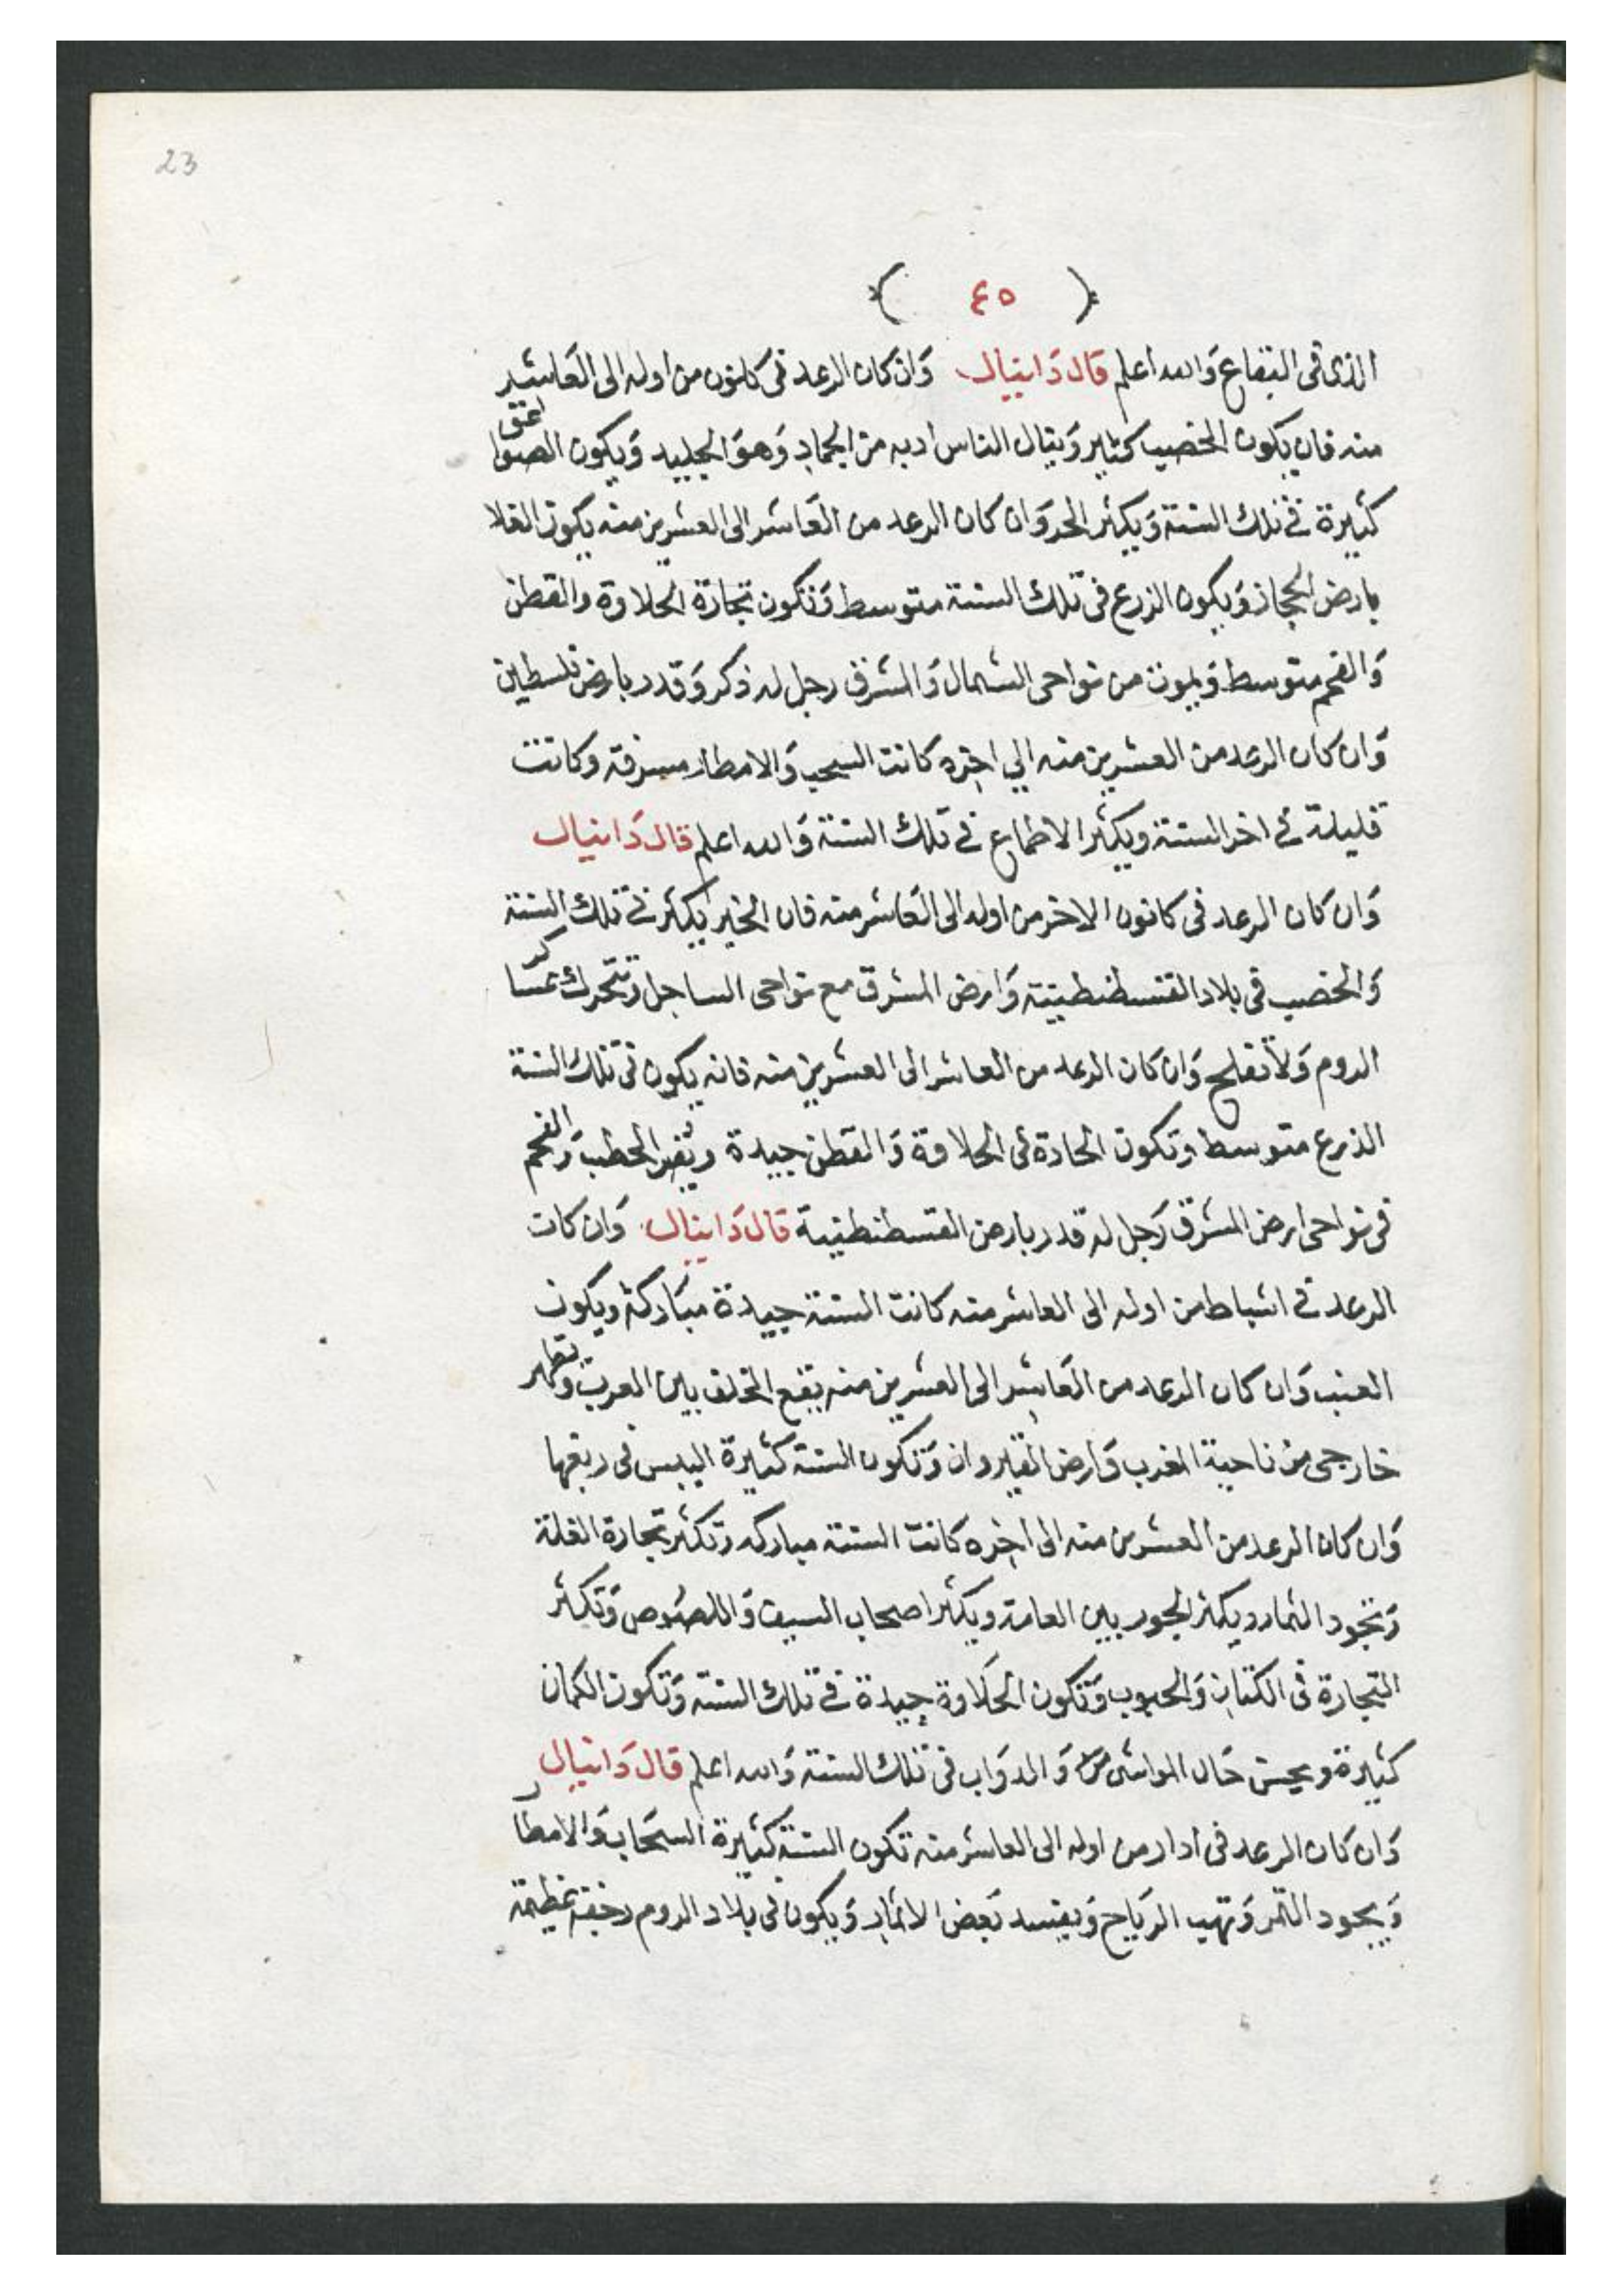 23
( ٤٥ )
الذى فى البقاع وَالله اعلم قال دَانيال وَان كان الرعد فى كانون من اوله الى العَاشر
منه فان يكون الخصيب كثير وَينال الناس ادبه من الجماد وَهوَ الجليد وَيكون الصواعق
كثيرة فى تلك السنة وَيكثر الحر وَان كان الرعد من العَاشر الى العشرين منه يكون الغلا
بارض الحجاز وَيكون الزرع فى تلك السنة متوسط وَتكون تجارة الحلاوة والقطن
وَالفحم متوسط وَيموت من نواحى الشمال وَالشرق رجل له ذكر وَقدر بارض فلسطين
وَان كان الرعد من العشرين منه الي اخره كانت السحب وَالامطار مسرفة وكانت
قليلة فى اخر السنة ويكثر الاطماع فى تلك السنة وَالله اعلم قال دَانيال
وَان كان الرعد فى كانون الاخر من اوله الى العَاشر منه فان الخير يكثر فى تلك السنة
وَالخصب فى بلاد القسطنطينية وَارض المشرق مع نواحى الساحل وتتحرك عساكر
الروم وَلا تفلح وَان كان الرعد من العاشر الى العشرين منه فانه يكون فى تلك السنة
الزرع متوسط وتكون الحادة فى الحلاوة وَالقطن جيدة و الحطب وَالفحم
فى نواحى ارض المشرق رَجل له قدر بارض القسطنطينية قال دَانيال وَان كان
الرعد فى اشباط من اوله الى العاشر منه كانت السنة جيدة مبَاركة ويكون
العنب وَان كان الرعد من العَاشر الى العشرين منه يقع الخلف بين العرب وتظهر
خارجى من ناحية المغرب وَارض القيروان وَتكون السنة كثيرة اليبس فى ربعها
وَان كان الرعد من العشرين منه الى اخره كانت السنة مباركه وتكثر تجارة الغلة
وَتجود الثمار ويكثر الجور بين العامة ويكثر اصحاب السيف وَاللصوص وَتكثر
التجارة فى الكتان وَالحبوب وَتكون الحَلاوة جيدة فى تلك السنة وَتكون الكمان
كثيرة ويحسن حَال المواشى وَالدوَاب فى تلك السنة وَالله اعلم قال دَانيال
وَان كان الرعد فى ادار من اوله الى العاشر منه تكون السنة كثيرة السحَاب وَالامطار
وَيجود الثمر وَتهب الريَاح وَيفسد بَعض الاثمار وَيكون فى بلاد الروم رجفة عظيمة